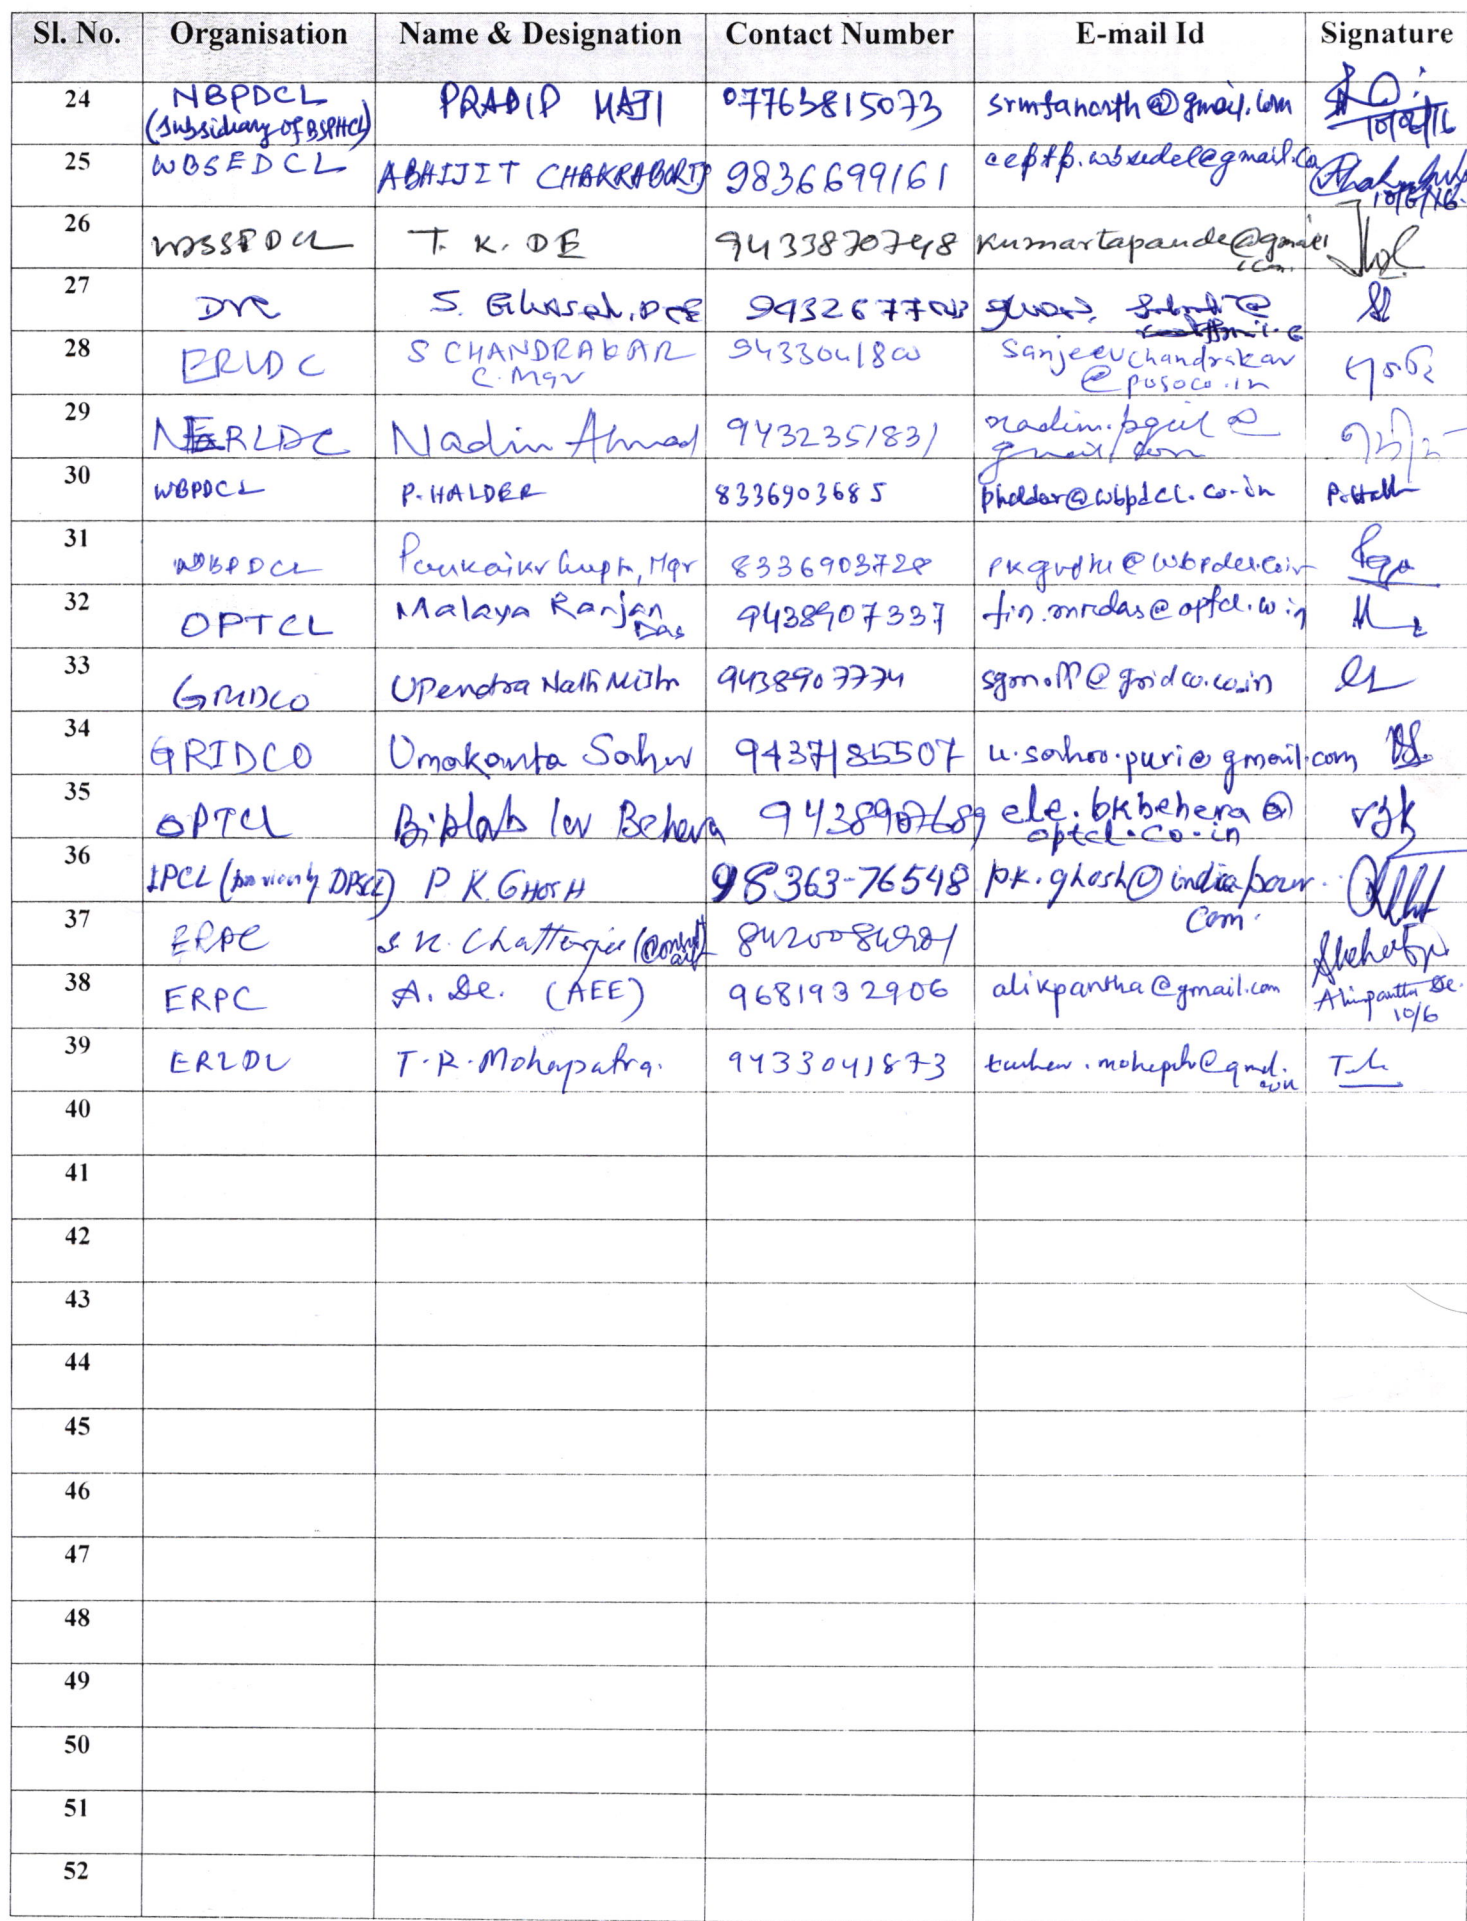 Sl. No. Organisation Name & Designation Contact Number E-mail Id Signature
24 NBPDCL PRADIP HAJI 07763815073 srmfanorth@gmail.com
(subsidiary of BSPHCL) 10/06/16
25 WBSEDCL ABHIJIT CHAKRABORTY 9836699161 ceptp.wbsedcl@gmail.co
10/6/16
26 T. K. DE 9433870748 kumartapande@gmail
.com
27 DVC S. Ghosh, DCE
28 ERLDC S CHANDRAKAR 9433041800 Sanjeevchandrakar
C. Mgr @posoco.in
29 NERLDC Nadim Ahmad 9432351831 nadim.pgcil@
gmail.com
30 WBPDCL P. HALDER 8336903685 phalder@wbpdcl.co.in
31 WBPDCL Gupta, Mgr 8336903728
32 OPTCL Malaya Ranjan 9438907337 fin.mrdas@optcl.co.in
Das
33 GRIDCO Upendra Nath Mishra 9438907774 @gridco.co.in
34 GRIDCO Umakanta Sahoo 9437185507 u.sahoo.puri@gmail.com
35 OPTCL Biplab kr Behera 9438907689 ele.bkbehera@
optcl.co.in
36 IPCL (previously DPSCL) P K GHOSH 98363-76548 pk.ghosh@indiapower.
com
37 ERPC S. K. Chatterjee
38 ERPC A. De. (AEE) 9681932906 alikpantha@gmail.com Alikpantha De.
10/6
39 ERLDC T.R. Mohapatra. 9433041873
40
41
42
43
44
45
46
47
48
49
50
51
52